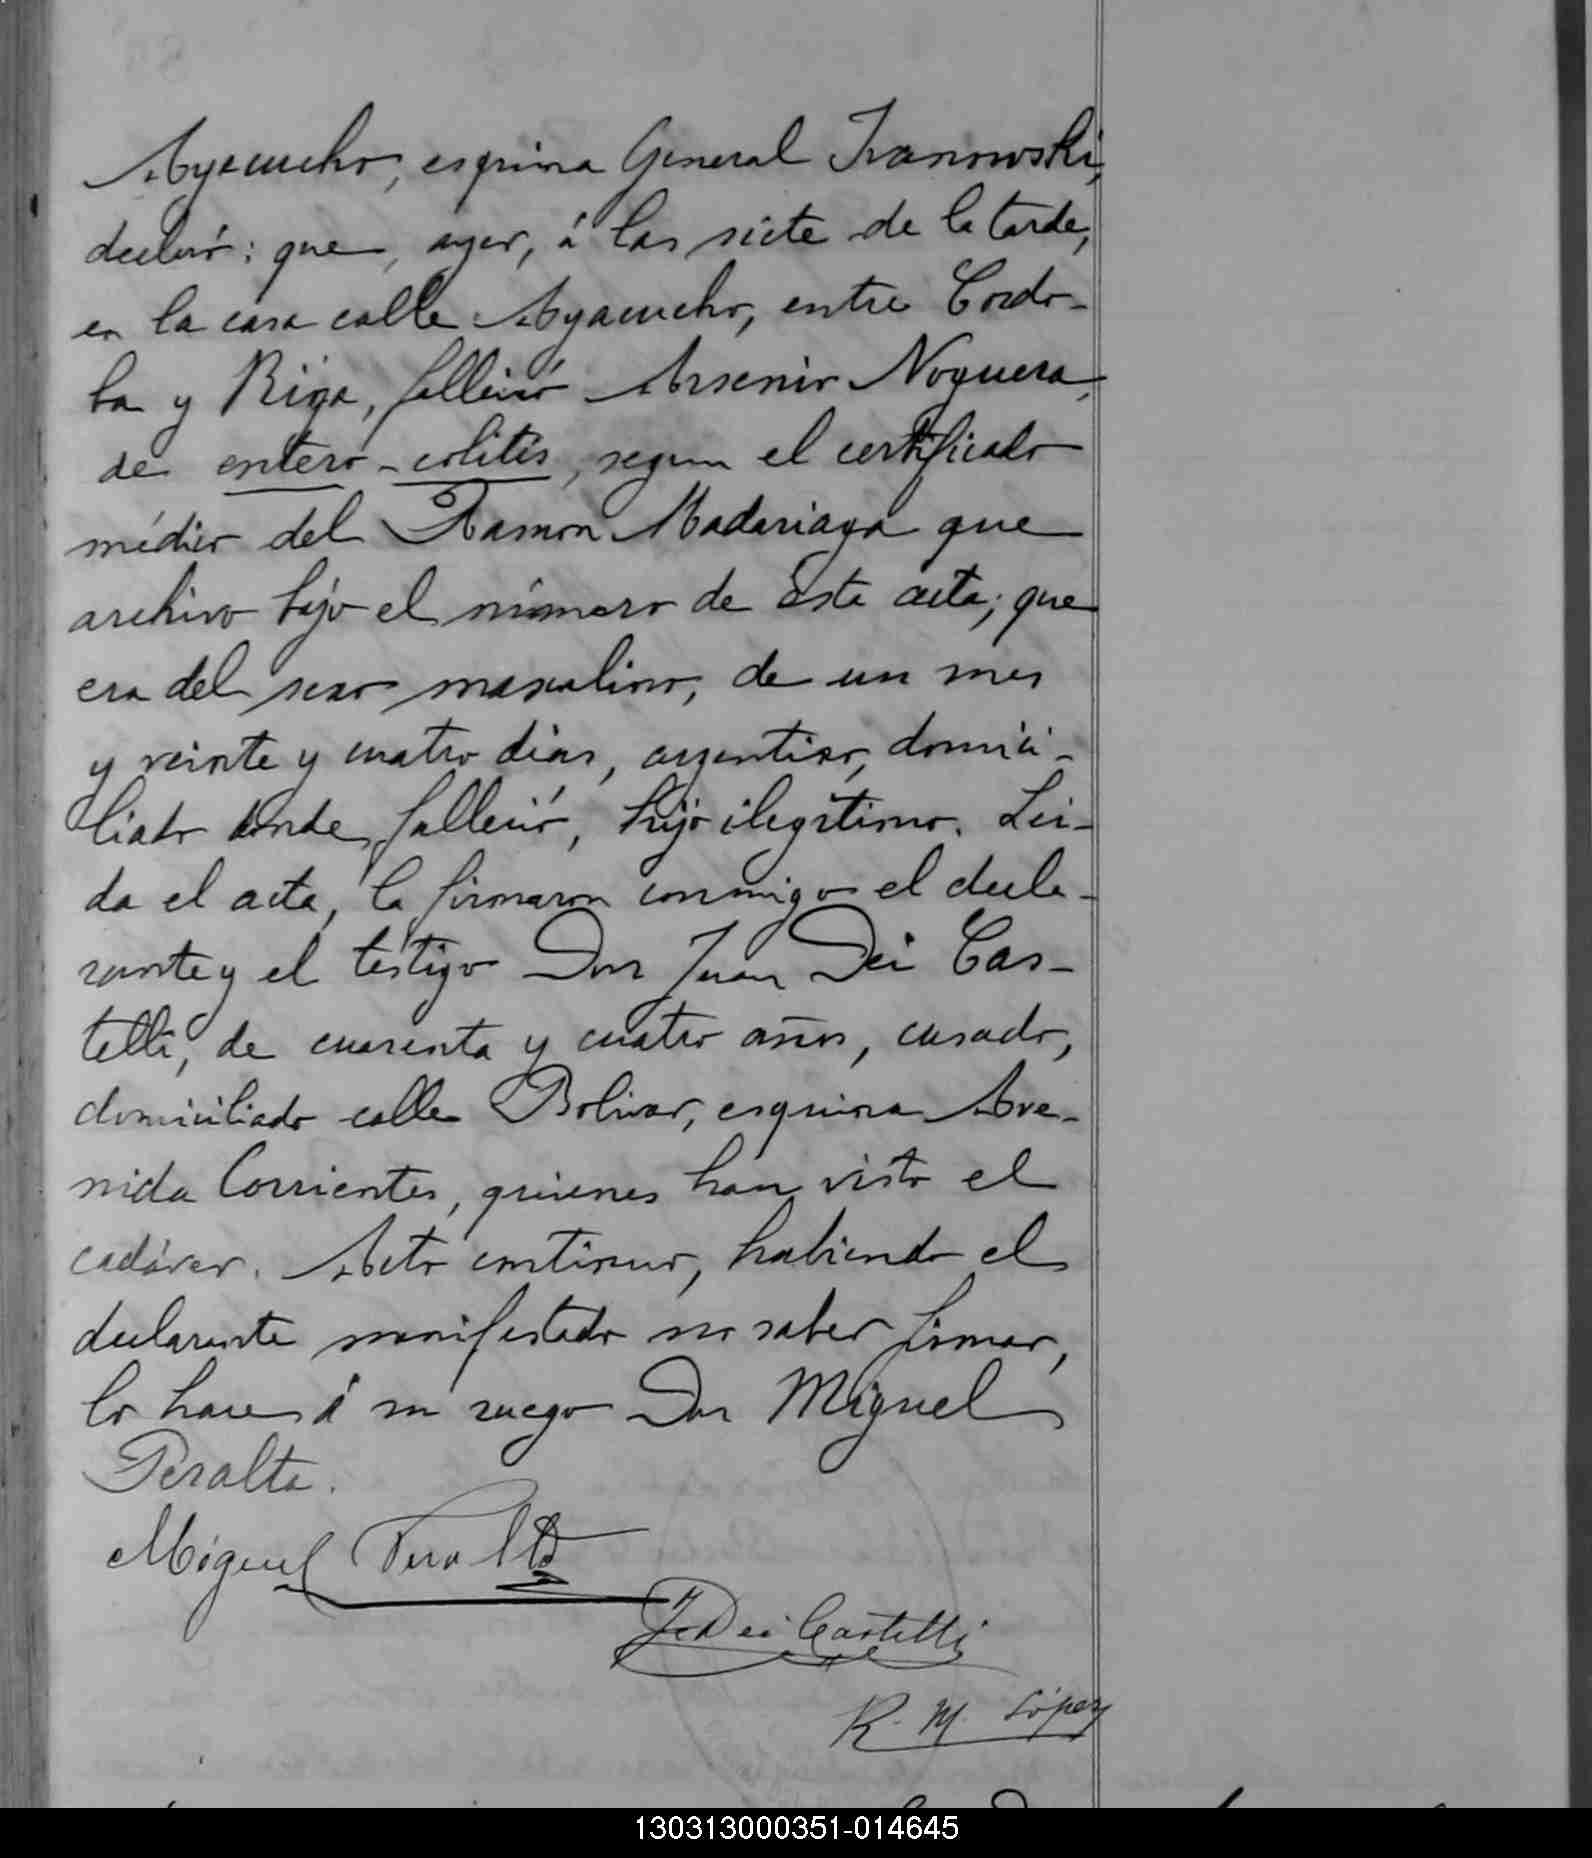 Ayacucho, esquina General Ivanowski,
declaró: que, ayer, á las siete de la tarde,
en la casa calle Ayacucho, entre Cordo-
ba y Rioja, falleció Arsenio Noguera,
de entero-colitis, segun el certificado
médico del Ramon Madariaga que
archivo bajo el número de esta acta; que
era del sexo masculino, de un mes
y veinte y cuatro dias, argentino, domici-
liado donde falleció, hijo ilegítimo. Lei-
da el acta, la firmaron conmigo el decla-
rante y el testigo Don Juan Dei Cas-
telli, de cuarenta y cuatro años, casado,
domiciliado calle Bolivar, esquina Ave-
nida Corrientes, quienes han visto el
cadáver. Acto continuo, habiendo el
declarante manifestado no saber firmar,
lo hace á su ruego Don Miguel
Peralta.
Miguel Peralta
J. Dei Castelli
R. M. López
130313000351-014645